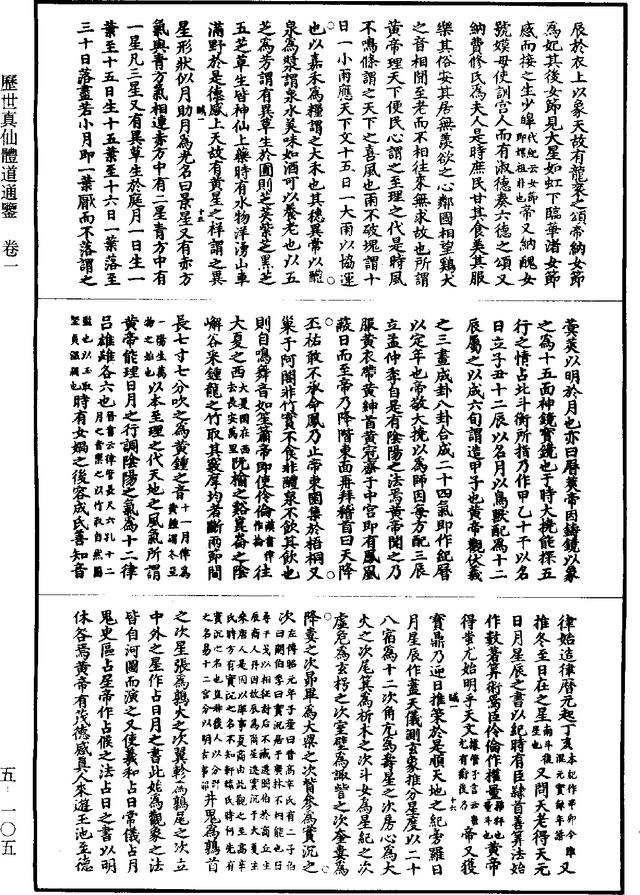 辰於衣上以象天故有龍袞之頌帝納女節
為妃其後女節見大星如虹下臨華渚女節
感而接之生少皥代紀云女節即嫘祖非也帝又納醜女
號嫫母使訓宮人而有淑德奏六德之頌又
納費修氏為夫人是時庶民甘其食美其服
樂其俗安其居無羨欲之心鄰國相望鷄犬
之音相聞至老而不相往來無求故也所謂
黃帝理天下便民心謂之至理之代是時風
不鳴條謂之天下之喜風也雨不破塊謂十
日一小雨應天下文十五日一大雨以協運
也以嘉禾為糧謂之大禾也其穗異常以醴
泉為漿謂泉水美味如酒可以養老也以五
芝為芳謂有異草生於圃則芝英紫芝黑芝
五芝草生皆神仙上藥時有水物洋湧山車
滿野於是德感上天故有黃星之祥謂之異
星形狀似月助月為光名曰景星又有赤方
氣與青方氣相連赤方中有二星青方中有
一星凡三星又有異草生於庭月一日生一
葉至十五日生十五葉至十六日一葉落至
三十日落盡若小月即一葉厭而不落謂之
蓂莢以明於月也亦曰曆莢帝因鑄鏡以象
之為十五面神鏡寶鏡也于時大撓能探五
行之情占北斗衡所指乃作甲乙十干以名
日立子丑十二辰以名月以鳥獸配為十二
辰屬之以成六旬謂造甲子也黃帝觀伏羲
之三畫成卦八卦合成二十四氣即作紀曆
以定年也帝敬大撓以為師因每方配三辰
立孟仲季自是有陰陽之法焉黃帝聞之乃
服黃衣帶黃紳首黃冠齋于中宮即有鳳凰
蔽日而至帝乃降階東面再拜稽首曰天降
丕祐敢不承命鳳乃止帝東園集於梧桐又
巢于阿閣非竹實不食非醴泉不飲其飲也
則自鳴舞音如笙簫帝即使伶倫漢書律作泠綸往
大夏之西大夏國在西去長安萬里阮榆之谿崑崙之陰
嶰谷采鍾龍之竹取其竅厚均者斷兩節間
長七寸七分吹之為黃鍾之音十一月律為黃鍾謂冬至
一陽生萬物之始也以本至理之代天地之風氣所謂
黃帝能理日月之行調陰陽之氣為十二律
吕雄雌各六也晉書云律管長尺六孔十二月之音舜之以竹取自然圓
虛也以玉取堅貞溫潤也時有女媧之後容成氏善知音
律始造律曆元起丁亥本紀作甲卯今雖混元實錄年落又
推冬至日在之星南斗星也又問天老得天元
日月星辰之書以紀時有臣隸首善算法始
作數著算術焉臣伶倫作權量權秤也量斗斛也黃帝
得蚩尤始明乎天文據管子言之蚩尤有術後乃叛帝又獲
寶鼎乃迎日推策於是順天地之紀旁羅日
月星辰作蓋天儀測玄象推分星度以二十
八宿為十二次角亢為壽星之次房心為大
火之次尾箕為析木之次斗女為星紀之次
虛危為玄枵之次室壁為諏訾之次奎婁為
降婁之次昴畢為大梁之次觜參為實沉之
次
之次星張為鶉火之次翼軫為鶉尾之次立
中外之星作占日月之書此始為觀象之法
皆自河圖而演之又使羲和占日常儀占月
鬼臾區占星帝作占候之法占日之書以明
休咎焉黃帝有茂德感真人來遊玉池至德
賊一
十五
賊一
十六
歷世真仙體道通鑑
卷一
五—一〇五